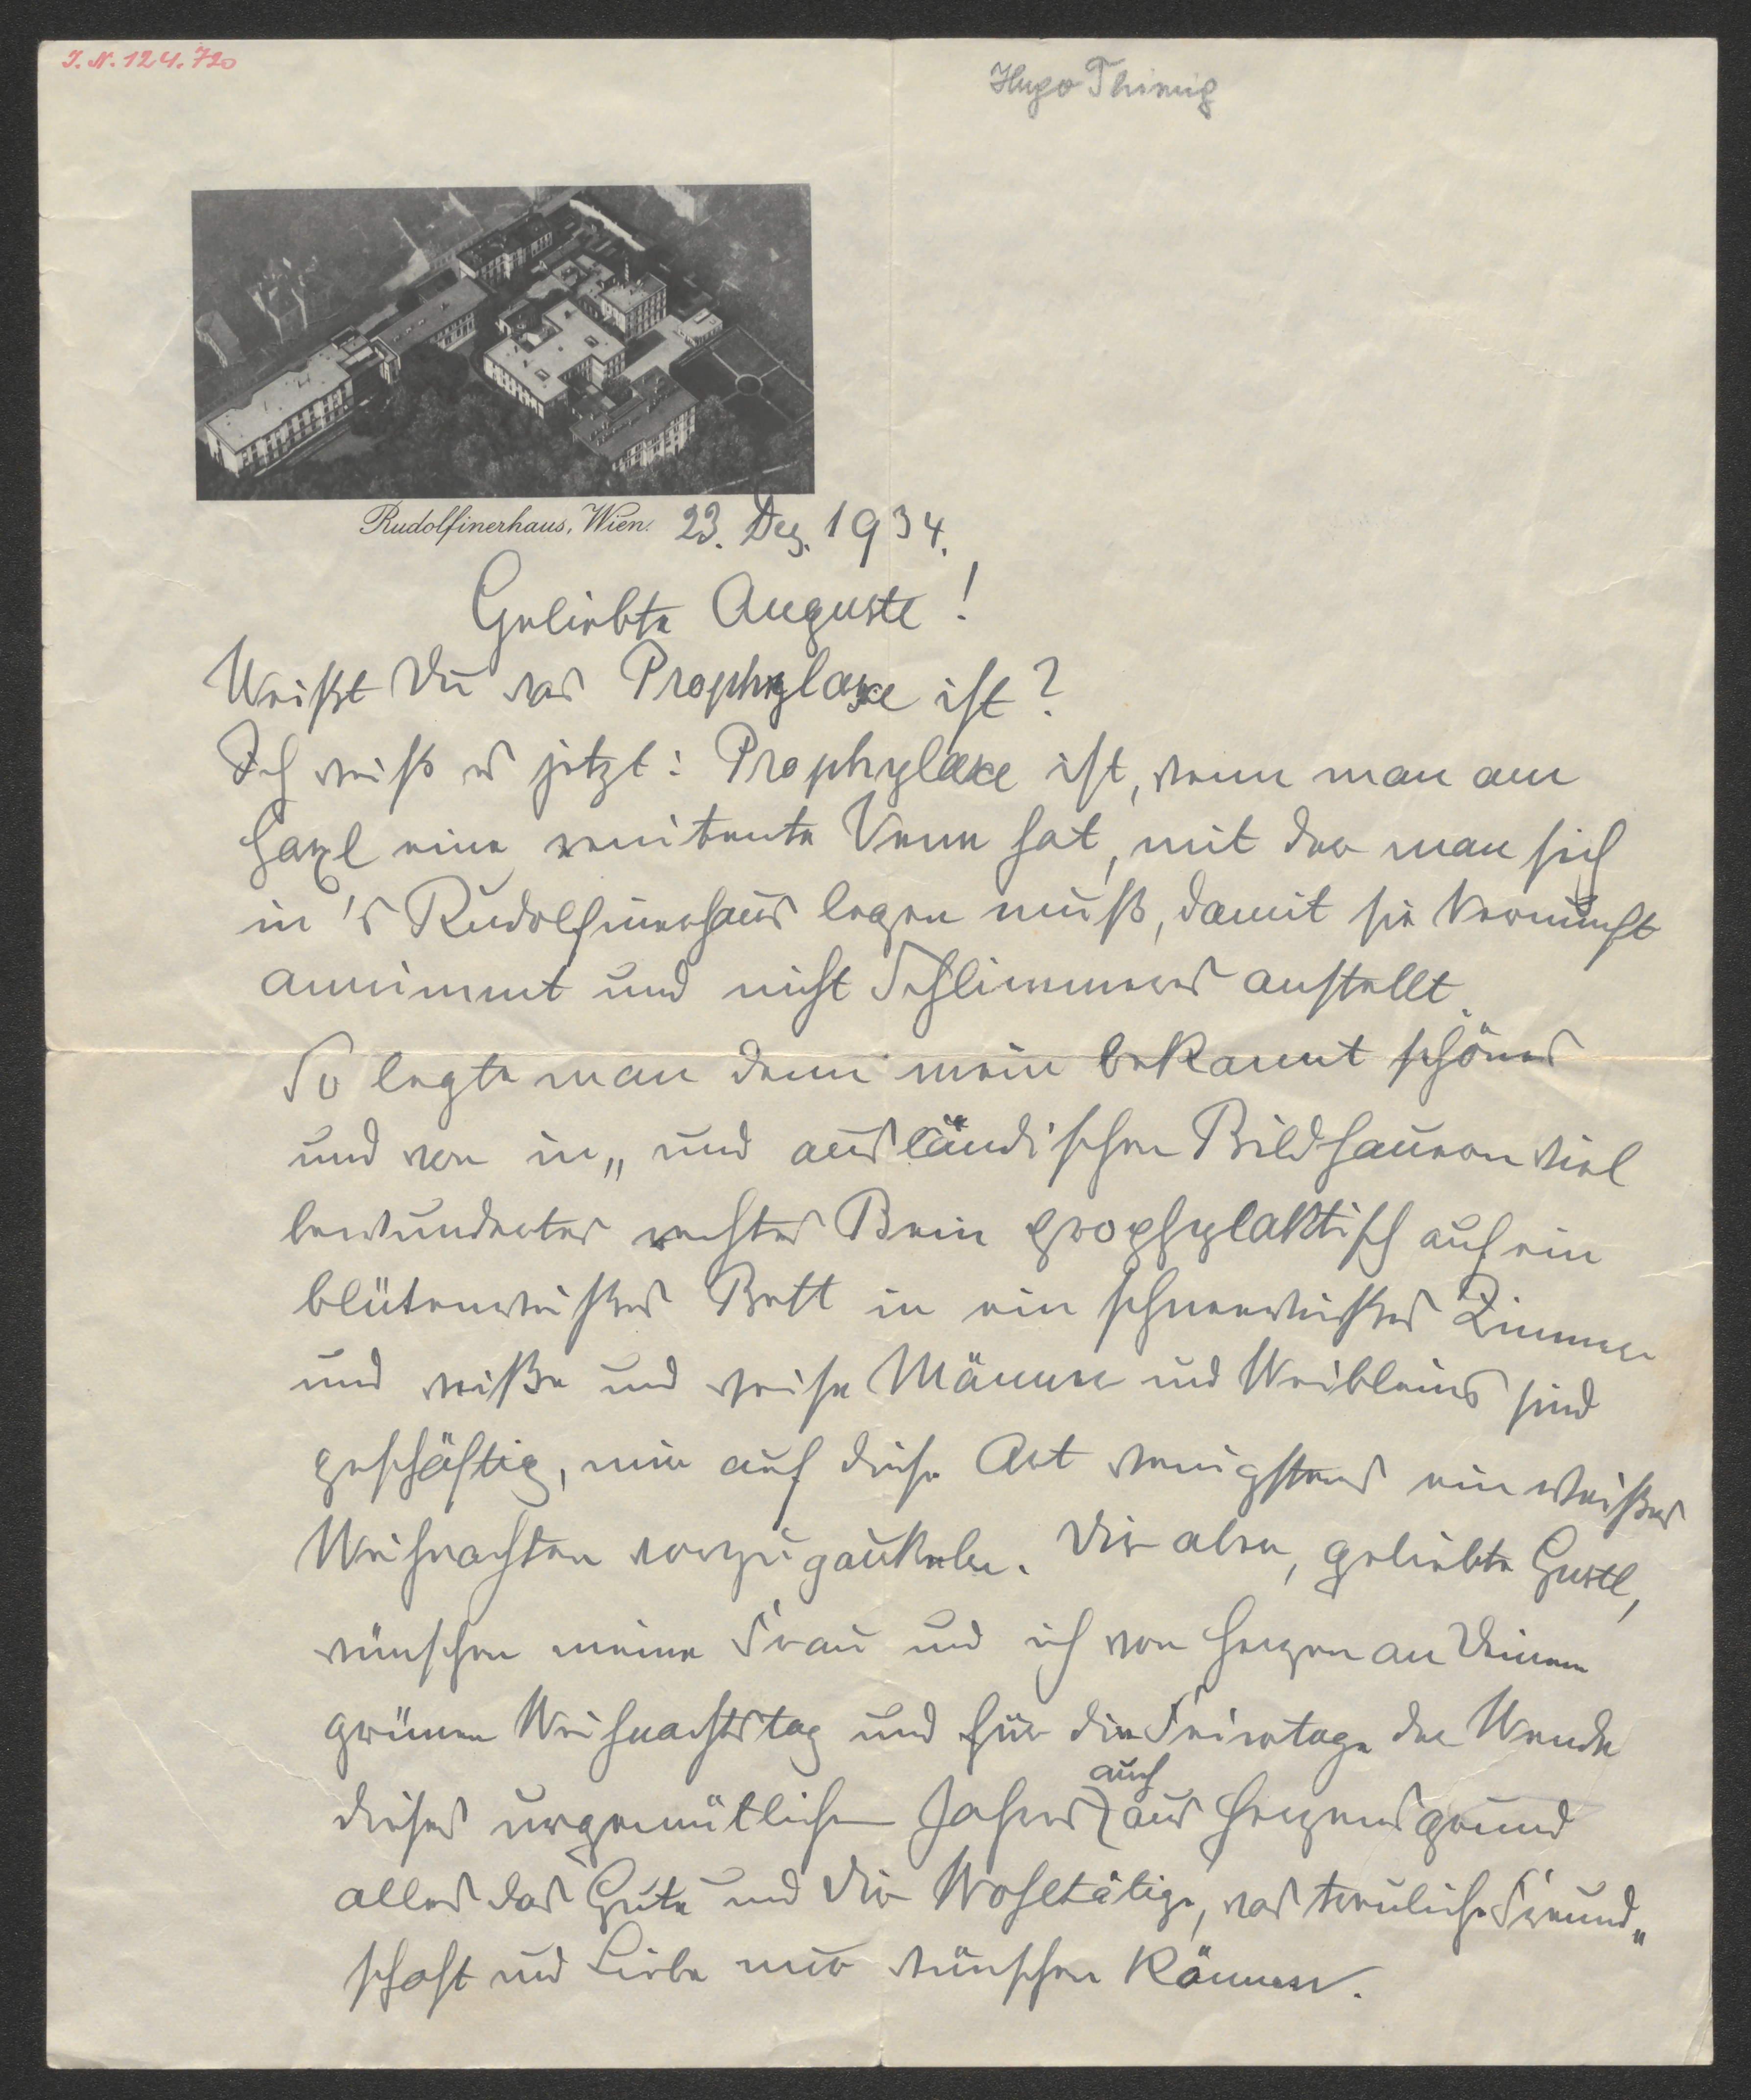 J. N. 124.720
Hugo Thimig
Rudolfinerhaus, Wien. 23. Dez. 1934.
Geliebte Auguste!
Weißt Du was Prophylaxe ist?
Ich weiß es jetzt: Prophylaxe ist, wenn man am
Haxl eine renitente Vene hat, mit der man sich
in's Rudolfinerhaus legen muß, damit sie Vernunft
annimmt und nicht Schlimmeres anstellt.
So legte man denn mein bekannt schönes
und von in„ und ausländischen Bildhauern viel
bewundertes rechtes Bein prophylaktisch auf ein
blütenweißes Bett in ein schneeweißes Zimmer
und weiße und weise Männer und Weibleins sind
geschäftig, mir auf diese Art wenigstens ein weißes
Weihnachten vorzugaukeln. Dir aber, geliebte Gustl,
wünschen meine Frau und ich von Herzen an Deinem
grünen Weihnachtstag und für die Feiertage der Wende
dieses urgemütlichen Jahres auch aus Herzensgrund
alles das Gute und Dir Wohltätige, was treuliche Freund„
schaft und Liebe nur wünschen können.